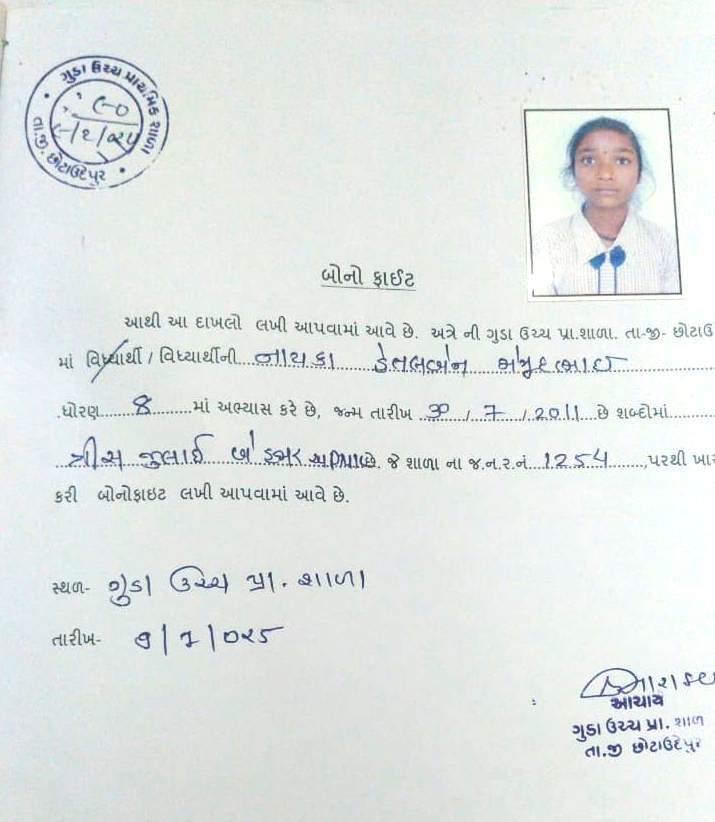 ગુડા ઉચ્ચ પ્રાથમિક શાળા
તા.જી. છોટાઉદેપુર
બોનો ફાઈટ
આથી આ દાખલો લખી આપવામાં આવે છે. અત્રે ની ગુડા ઉચ્ચ પ્રા.શાળા. તા-જી- છોટાઉ
માં વિધ્યાર્થી / વિધ્યાર્થીની નાયકા
ધોરણ 8 માં અભ્યાસ કરે છે, જન્મ તારીખ 30 / 7 / 2011 છે શબ્દોમાં
ત્રીસ જુલાઈ બે હજાર અગિયાર છે. જે શાળા ના જ.ન.ર.નં 1254, પરથી ખા
કરી બોનોફાઇટ લખી આપવામાં આવે છે.
સ્થળ- ગુડા ઉચ્ચ પ્રા. શાળા
તારીખ-
આચાર્ય
ગુડા ઉચ્ચ પ્રા. શાળ
તા.જી છોટાઉદેપુર